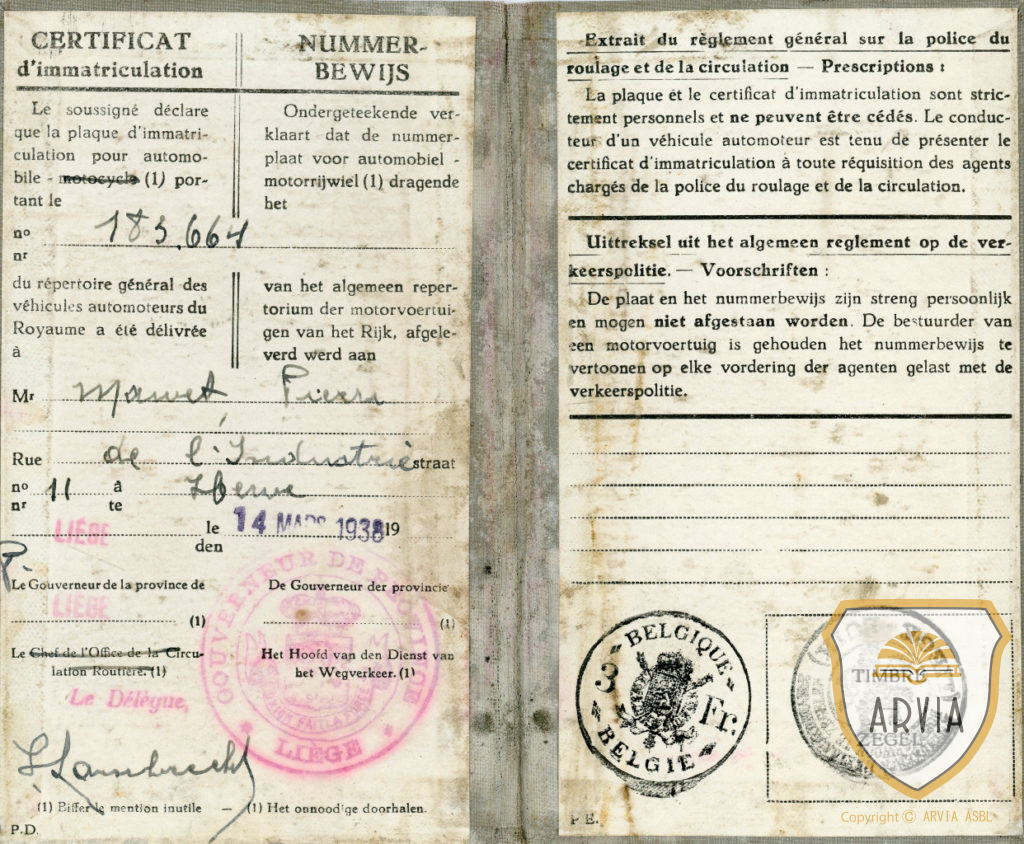 CERTIFICAT
d'immatriculation
Le soussigné déclare
que la plaque d'immatri-
culation pour automo-
bile - motocycle (1) por-
tant le
NUMMER-
BEWIJS
Ondergeteekende ver-
klaart dat de nummer-
plaat voor automobiel -
motorrijwiel (1) dragende
het
no
nr
183.664
du répertoire général des
véhicules automoteurs du
Royaume a été délivrée
à
van het algemeen reper-
torium der motorvoertui-
gen van het Rijk, afgele-
verd werd aan
Mr Mawet Pierre
Rue de l'Industrie straat
no 11 à Herve
nr te
LIÉGE
le 14 MARS 1938 19
den
P.
Le Gouverneur de la province de
LIÉGE
(1)
De Gouverneur der provincie
(1)
Le Chef de l'Office de la Circu-
lation Routière. (1)
Het Hoofd van den Dienst van
het Wegverkeer. (1)
Le Délégué,
GOUVERNEUR DE PROVINCE
LIÉGE
(1) Biffer le mention inutile — (1) Het onnoodige doorhalen.
P.D.
Extrait du règlement général sur la police du
roulage et de la circulation — Prescriptions :
La plaque et le certificat d'immatriculation sont stric-
tement personnels et ne peuvent être cédés. Le conduc-
teur d'un véhicule automoteur est tenu de présenter le
certificat d'immatriculation à toute réquisition des agents
chargés de la police du roulage et de la circulation.
Uittreksel uit het algemeen reglement op de ver-
keerspolitie. — Voorschriften :
De plaat en het nummerbewijs zijn streng persoonlijk
en mogen niet afgestaan worden. De bestuurder van
een motorvoertuig is gehouden het nummerbewijs te
vertoonen op elke vordering der agenten gelast met de
verkeerspolitie.
BELGIQUE
3 Fr.
BELGIE
TIMBRE
ZEGEL
ARVIA
P.E.
Copyright © ARVIA ASBL